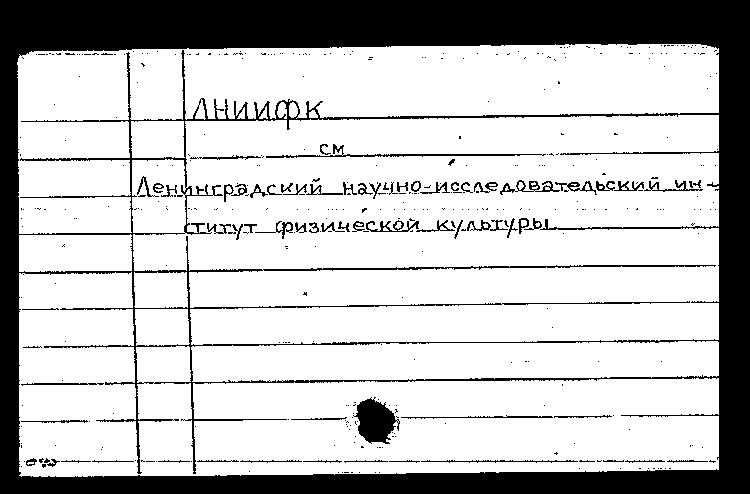 ЛНИИФК
см
Ленинградский научно-исследовательский ин-
ститут физической культуры